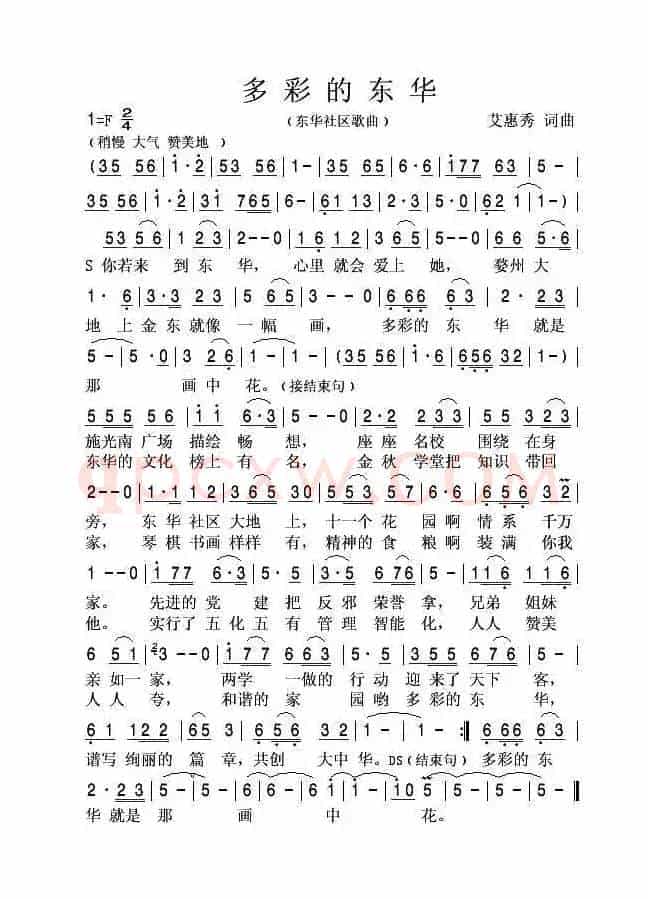 多彩的东华
1=F 2/4
（东华社区歌曲）
艾惠秀 词曲
（稍慢 大气 赞美地 ）
(35 56 | 1·2 | 53 56 | 35 65 | 6·6 | 177 65 |
35 56 | 1·2 | 31 765 | 6- | 613 | 2·3 | 5·0 | 62 1 | 1-)|
53 5 6 | 1 2 3 | 2--0 | 01 6 12 | 3 6 5 | 2--0 | 5·6 |
S 你若来 到 东 华， 心里 就会 爱上 她， 婺州 大
1· 6 | 3·3 2 3 | 5 65 | 3--0 | 6·66 63 | 2· 23 |
地 上 金东 就像 一 幅 画， 多彩的 东 华 就是
5- | 5·0 | 3 26 | 1- | 1- | (35 56 | 1·2 | 656 32 | 1-)|
那 画 中 花。（接结束句）
555 56 | 11 6·3 | 5--0 | 2·2 23 | 5 5 | 323 |
施光南 广场 描绘 畅 想， 座座 名校 围绕 在身
东华的 文化 榜上 有 名， 金秋 学堂把 知识 带回
2--0 | 1·1 12 | 3 65 30 | 553 5 | 6·6 | 56 32 |
旁， 东 华 社区 大地 上， 十一个 花 园啊 情 系 千万
家， 琴 棋 书画 样样 有， 精神的 食 粮啊 装 满 你我
1--0 | 177 6·3 | 5·5 | 3·5 676 | 5- | 116 116 |
家。 先进的 党 建 把 反 邪 荣誉 拿， 兄弟 姐妹
他。 实行了 五 化 五 有 管 理 智能 化， 人人 赞美
6 51 | 3--0 | 177 | 663 | 5·5 | 355 233 | 5·- |
亲 如一 家， 两学 一做的 行动 迎 来了 天下 客，
人 人 夸， 和谐的 家 园哟 多 彩的 东 华，
61 122 | 2·5 | 3 23 | 656 | 2 23 | 1- | 1- :| 666 63 |
谱写 绚丽的 篇 章，共创 大中 华。DS（结束句） 多彩的 东
2·23 | 5- | 5- | 56 | 6- | 61 | 1- | 10 5 | 5- | 5- ‖
华 就是 那 画 中 花。
qpcxw.COM